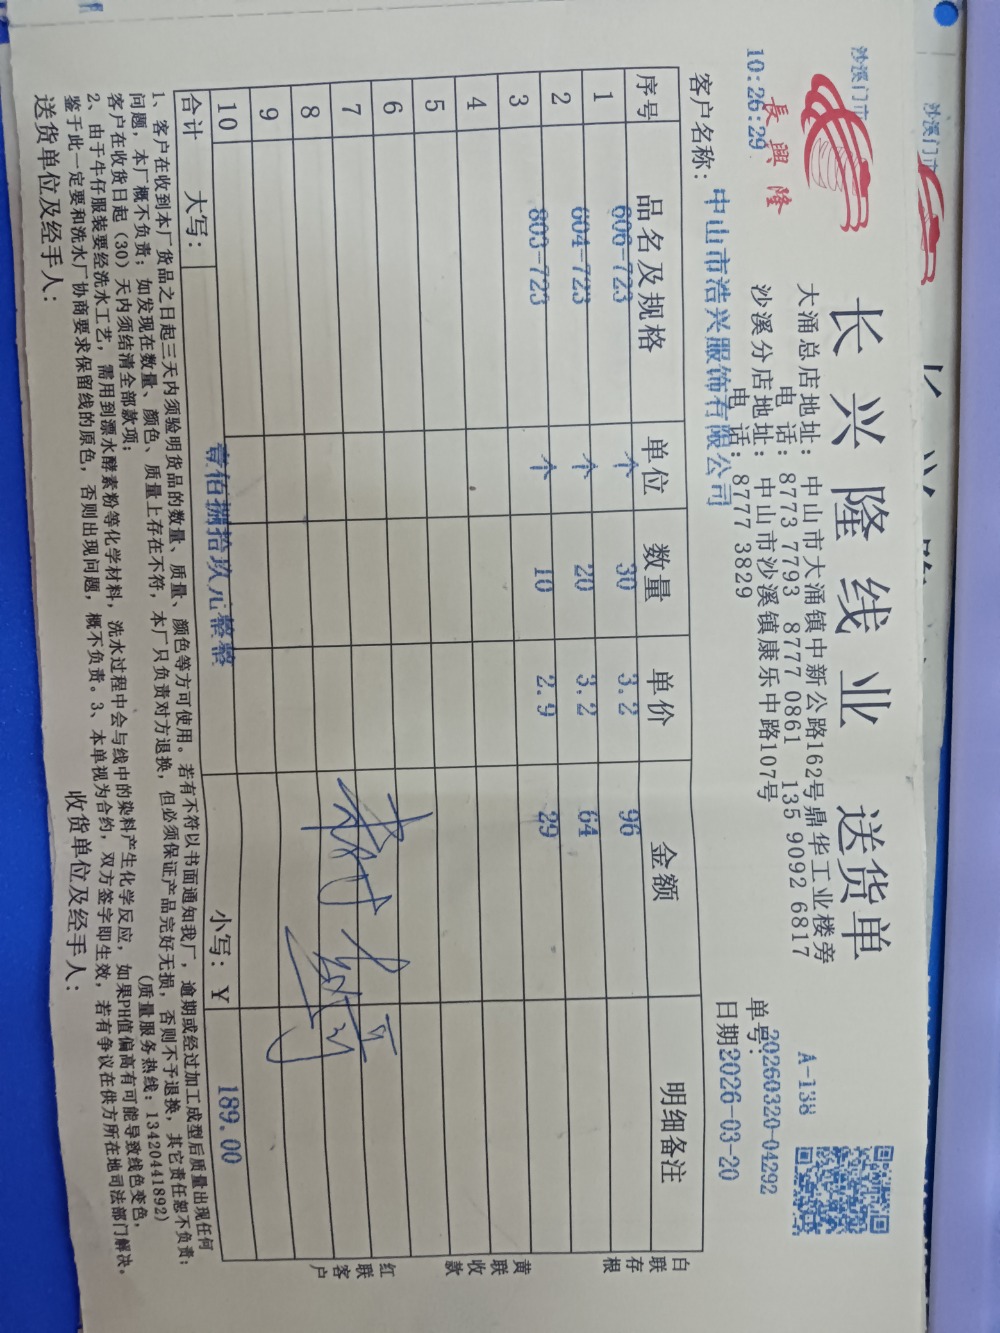 沙溪门市
10:26:29
長興隆
长兴隆线业 送货单
A-138
大涌总店地址：中山市大涌镇中新公路162号鼎华工业楼旁
电 话：8773 7793 8777 0861 135 9092 6817
沙溪分店地址：中山市沙溪镇康乐中路107号
电 话：8777 3829
单号：20260320-04292
客户名称：中山市浩兴服饰有限公司
日期2026-03-20
序号 品名及规格 单位 数量 单价 金额 明细备注
1 606-723 个 30 3.2 96
2 604-723 个 20 3.2 64
3 803-723 个 10 2.9 29
4
5
6
7
8
9
10
合计 大写：壹佰捌拾玖元整整 小写：Y 189.00
1、客户在收到本厂货品之日起三天内须验明货品的数量、质量、颜色等方可使用。若有不符以书面通知我厂，逾期或经过加工成型后质量出现任何
问题，本厂概不负责；如发现在数量、颜色、质量上存在不符，本厂只负责对方退换，但必须保证产品完好无损，否则不予退换，其它责任恕不负责；
客户在收货日起（30）天内须结清全部款项； （质量服务热线：13420441892）
2、由于牛仔服装要经洗水工艺，需用到漂水酵素粉等化学材料，洗水过程中会与线中的染料产生化学反应，如果PH值偏高有可能导致线色变色，
鉴于此一定要和洗水厂协商要求保留线的原色，否则出现问题，概不负责。3、本单视为合约，双方签字即生效，若有争议在供方所在地司法部门解决。
送货单位及经手人： 收货单位及经手人：
白联存根
黄联收款
红联客户
沙溪门市